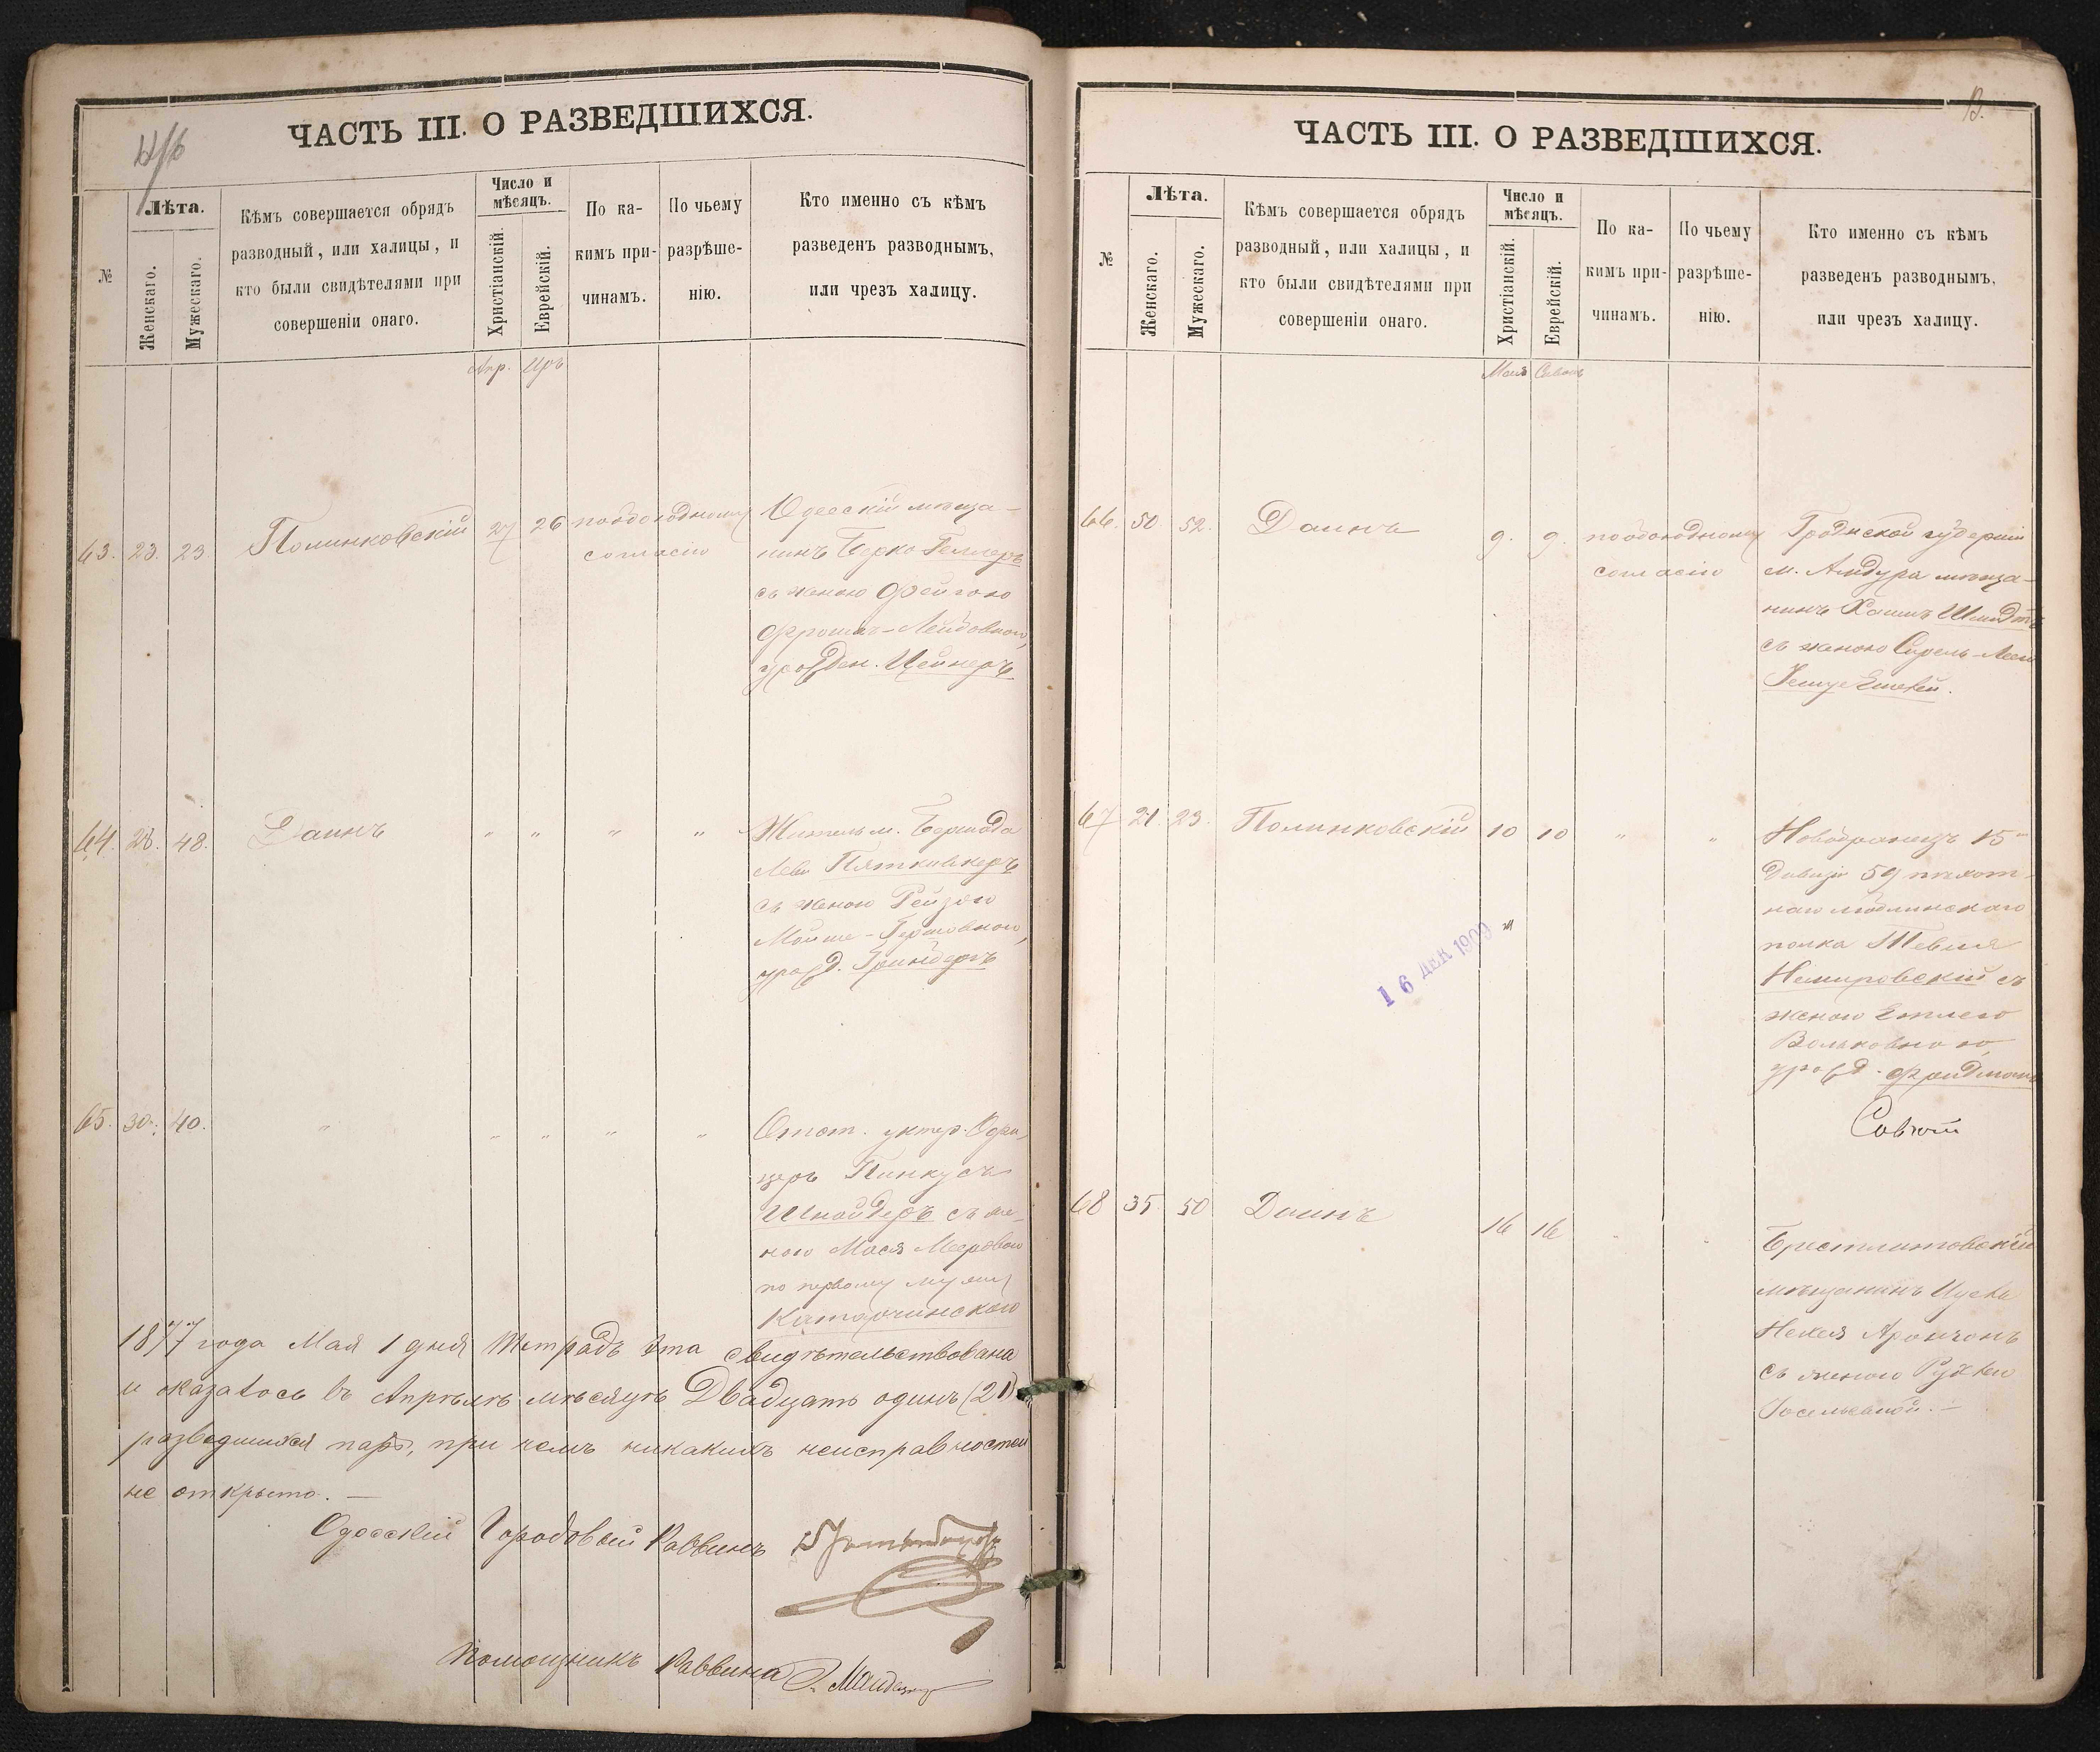 ЧАСТЬ III. О РАЗВЕДШИХСЯ.
№
Лѣта.
Женскаго.
Мужескаго.
Кѣмъ совершается обрядъ
разводный, или халицы, и
кто были свидѣтелями при
совершеніи онаго.
Число и
мѣсяцъ.
Христіанскій.
Еврейскій.
По ка-
кимъ при-
чинамъ.
По чьему
разрѣше-
нію.
Кто именно съ кѣмъ
разведенъ разводнымъ,
или чрезъ халицу.
Апр. Иръ
63. 23. 23. Полинковскій 27 26 по обоюдному
согласію
Одесскій мѣща-
нинъ Берко Геллеръ
съ женою Фейгою
Лейбовною,
урожден. Цейнеръ
64. 28. 48. Даинъ " " " "
Житель м. Бершада
Лейб Пятковкеръ
съ женою Рейзею
Мойше-Гершовною,
урожд. Гринбергъ
65. 30. 40. " " " " "
Отст. унтер-Офи-
церъ Пинкусъ
Шнайдеръ съ же-
ною Мася Мееровою
по первому мужу
1877 года Мая 1 дня Тетрадь эта свидѣтельствована
и оказалось въ Апрѣлѣ мѣсяцѣ Двадцать одинъ (21)
разведшихся паръ, при чемъ никакихъ неисправностей
не открыто. —
Одесскій Городовой Раввинъ
Помощникъ Раввина
ЧАСТЬ III. О РАЗВЕДШИХСЯ.
№
Лѣта.
Женскаго.
Мужескаго.
Кѣмъ совершается обрядъ
разводный, или халицы, и
кто были свидѣтелями при
совершеніи онаго.
Число и
мѣсяцъ.
Христіанскій.
Еврейскій.
По ка-
кимъ при-
чинамъ.
По чьему
разрѣше-
нію.
Кто именно съ кѣмъ
разведенъ разводнымъ,
или чрезъ халицу.
Май Сивонъ
66. 50. 52. Даинъ 9. 9. по обоюдному
согласію
Гродненской губерніи
м. Амдура мѣща-
нинъ Хаимъ Шмидтъ
съ женою Сирель-Леею
67 21. 23. Полинковскій 10 10 " "
Новобранецъ 15
Дивизіи 59 пѣхот-
наго Люблинскаго
полка Тевель
Немировскій съ
женою Етлею
Вольковною,
урожд. Фридманъ
16 ДЕК 1909
68 35 50 Даинъ 16 16
Брестлитовскій
мѣщанинъ
Аронзонъ
съ женою Рухлею
Іосьлевной. —